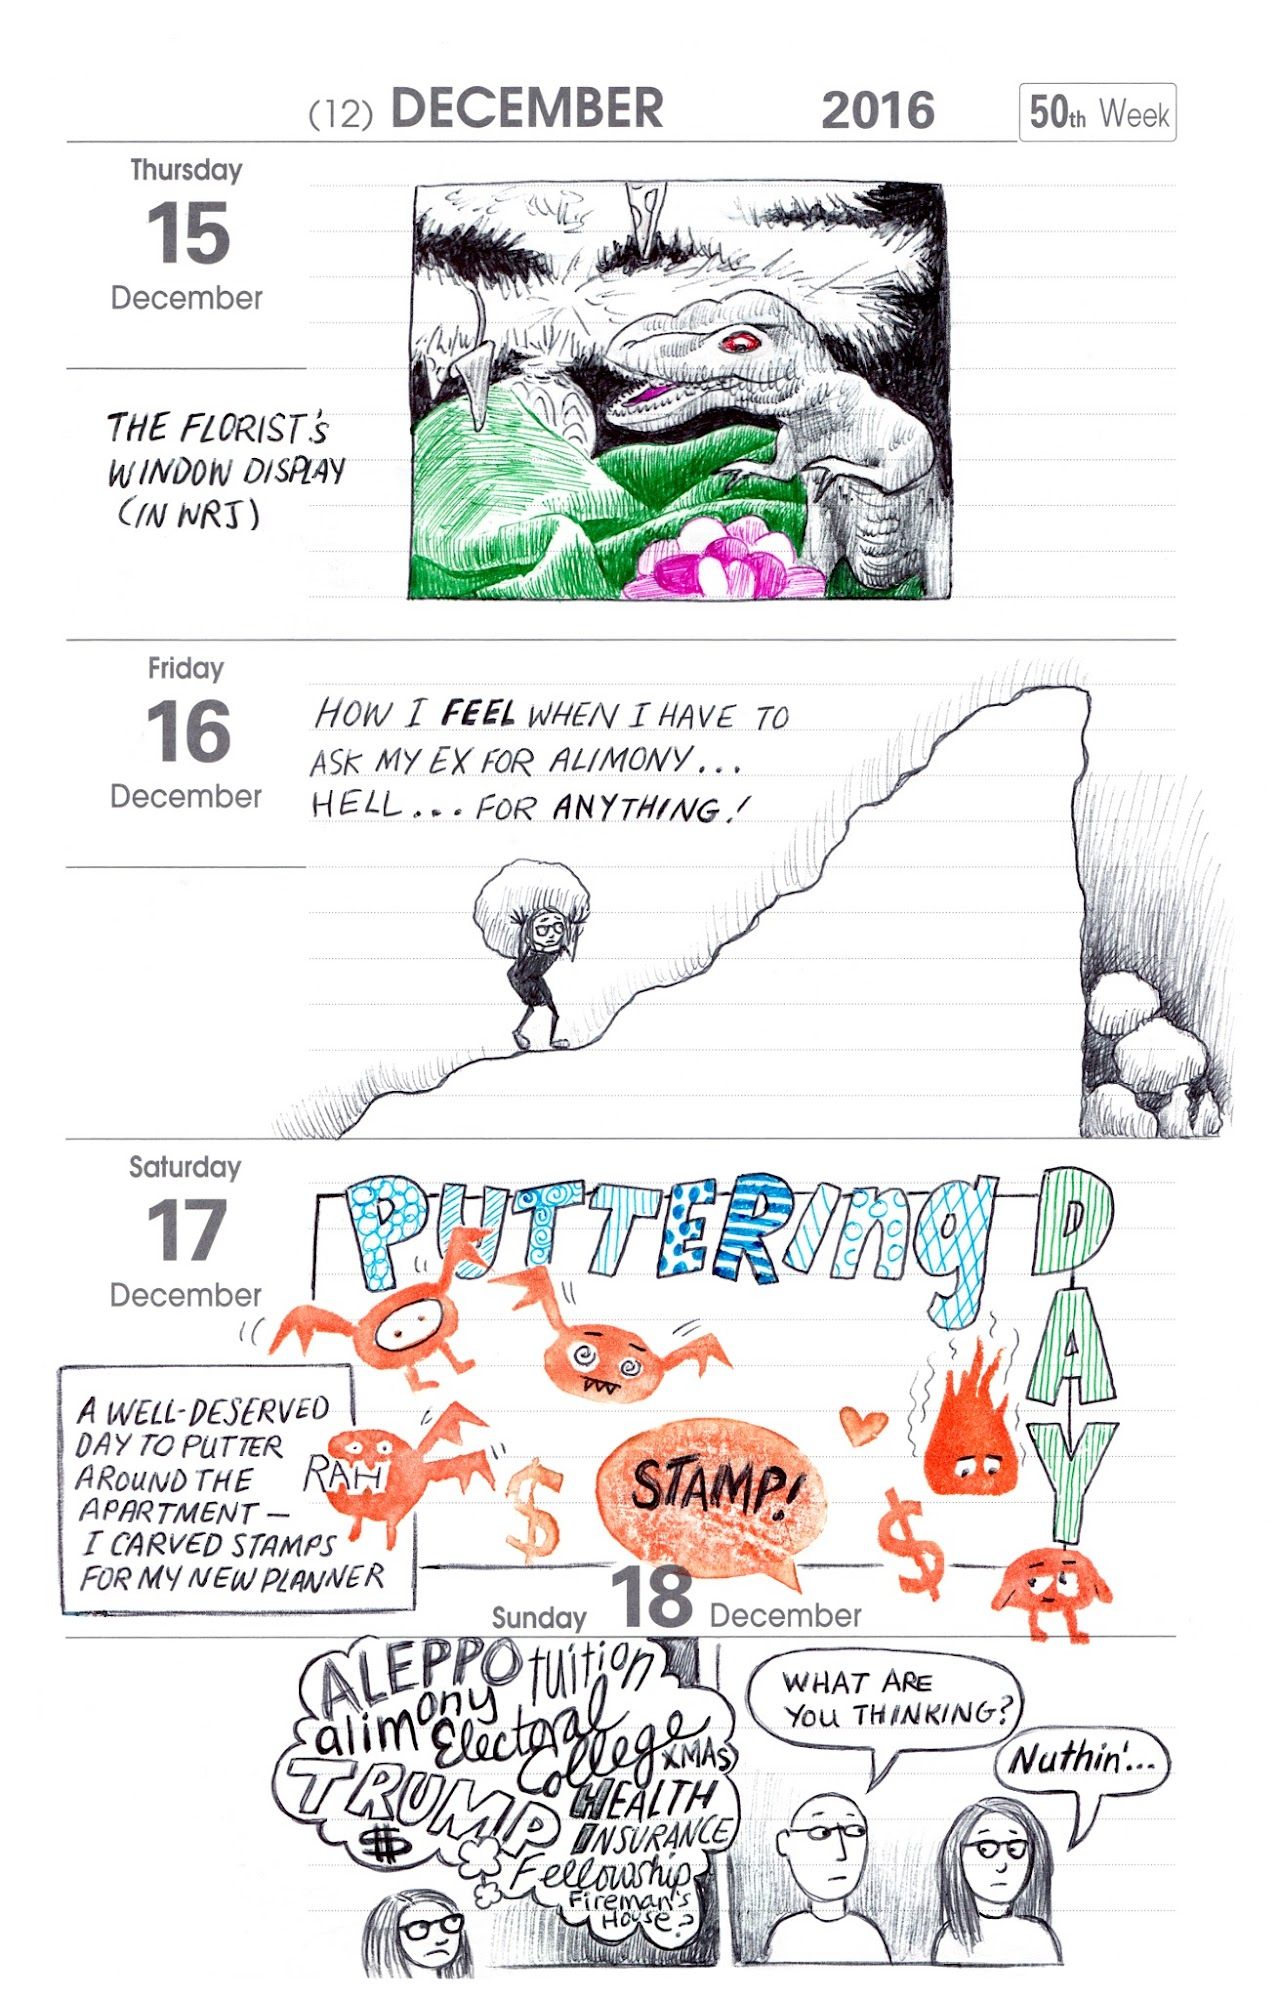 (12) DECEMBER 2016 50th Week
Thursday
15
December
THE FLORIST'S
WINDOW DISPLAY
(IN WRJ)
Friday
16
December
HOW I FEEL WHEN I HAVE TO
ASK MY EX FOR ALIMONY...
HELL... FOR ANYTHING!
Saturday
17
December
PUTTERing
DAY
A WELL-DESERVED
DAY TO PUTTER
AROUND THE
APARTMENT—
I CARVED STAMPS
FOR MY NEW PLANNER
RAH
$
STAMP!
$
Sunday 18 December
ALEPPO tuition
alimony Electoral
College XMAS
TRUMP HEALTH
$ INSURANCE
Fellowship
Fireman's
House?
WHAT ARE
YOU THINKING?
Nuthin'...